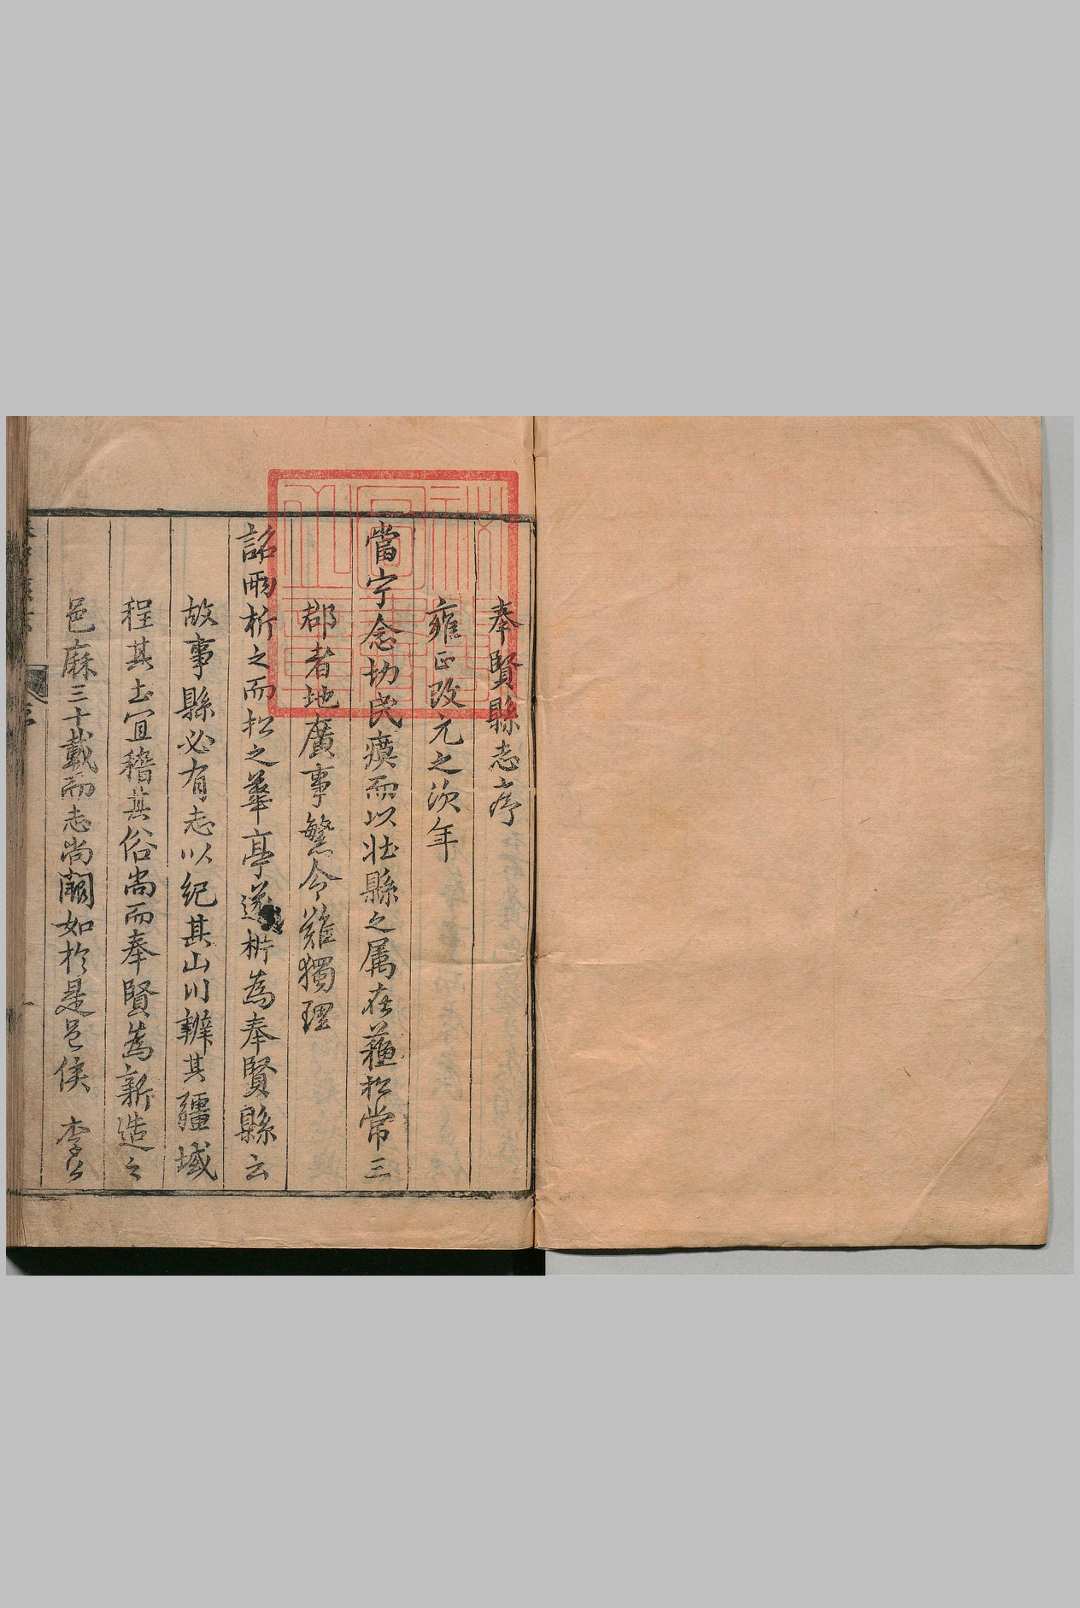 奉賢縣志序
雍正改元之次年
當宁念切民瘼而以壯縣之属在蘓松常三
郡者地廣事繁令難獨理
詔兩析之而松之華亭遂析為奉賢縣云
故事縣必有志以紀其山川辨其疆域
程其土宜稽其俗尚而奉賢為新造之
邑厤三十載而志尚闕如於是邑侯李公